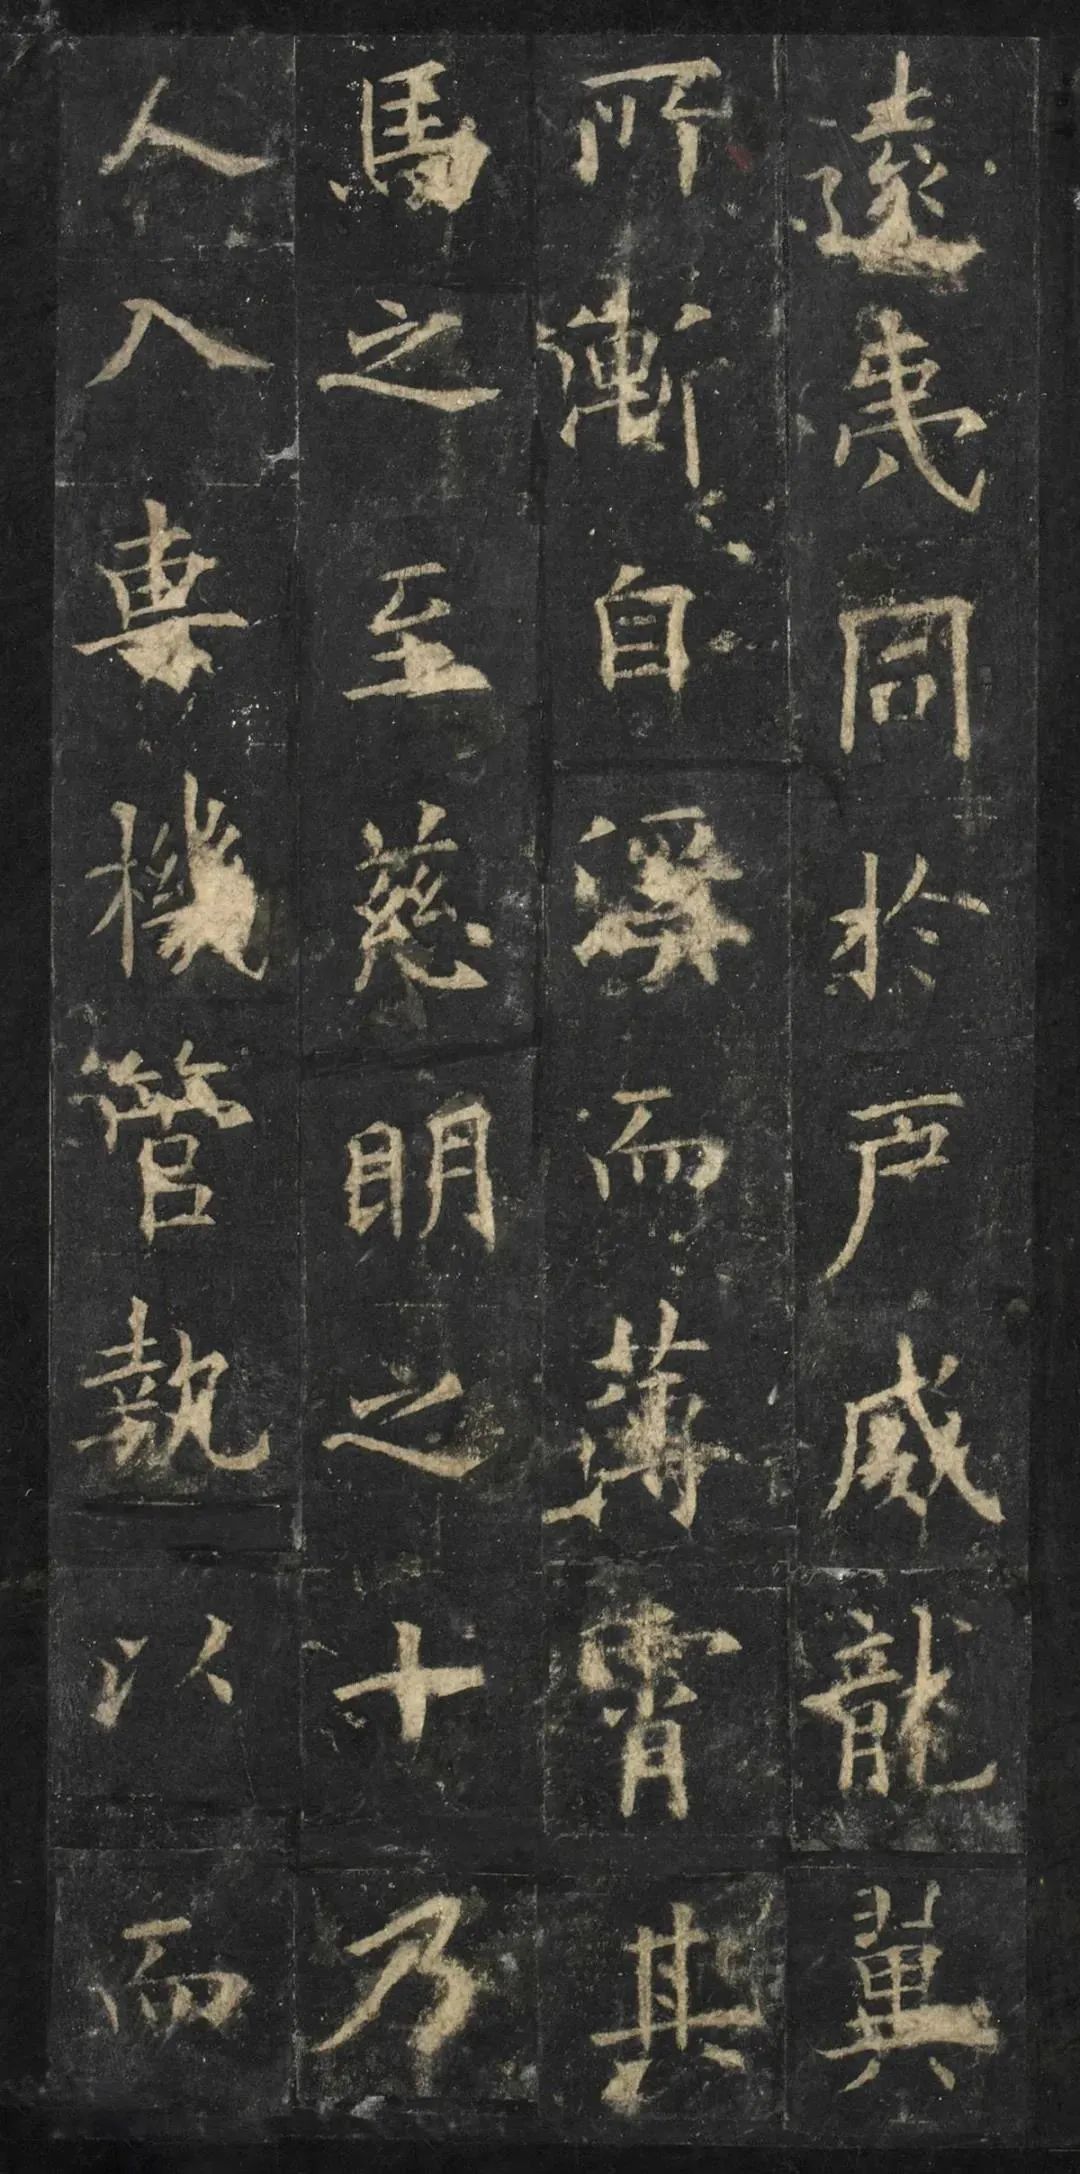 遠夷同於戶威龍冀
所漸自而薄霄其
馬之至慈明之十乃
人入專機管執以而